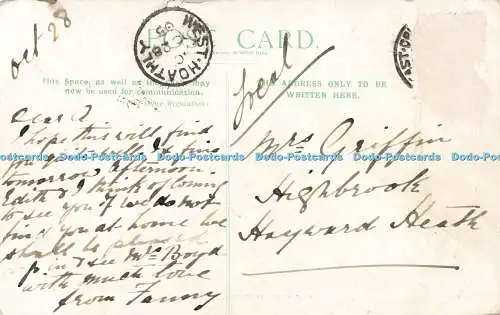 Oct 28
POST CARD.
WEST-HOATHLY
OC 28
05
Local
This Space, as well as the back, may
now be used for communication.
(Post Office Regulation)
THE ADDRESS ONLY TO BE
WRITTEN HERE.
Dear
I hope this will find
tomorrow afternoon.
Edith & I think of coming
to see you if we do not
find you at home we
shall be pleased
p. in & see Mrs Boyd
with much love
from Fanny
Mrs Griffin
Highbrook
Hayward Heath
Dodo-Postcards Dodo-Postcards Dodo-Postcards Dodo-Postcards Dodo-Postcards Dodo-Postcards